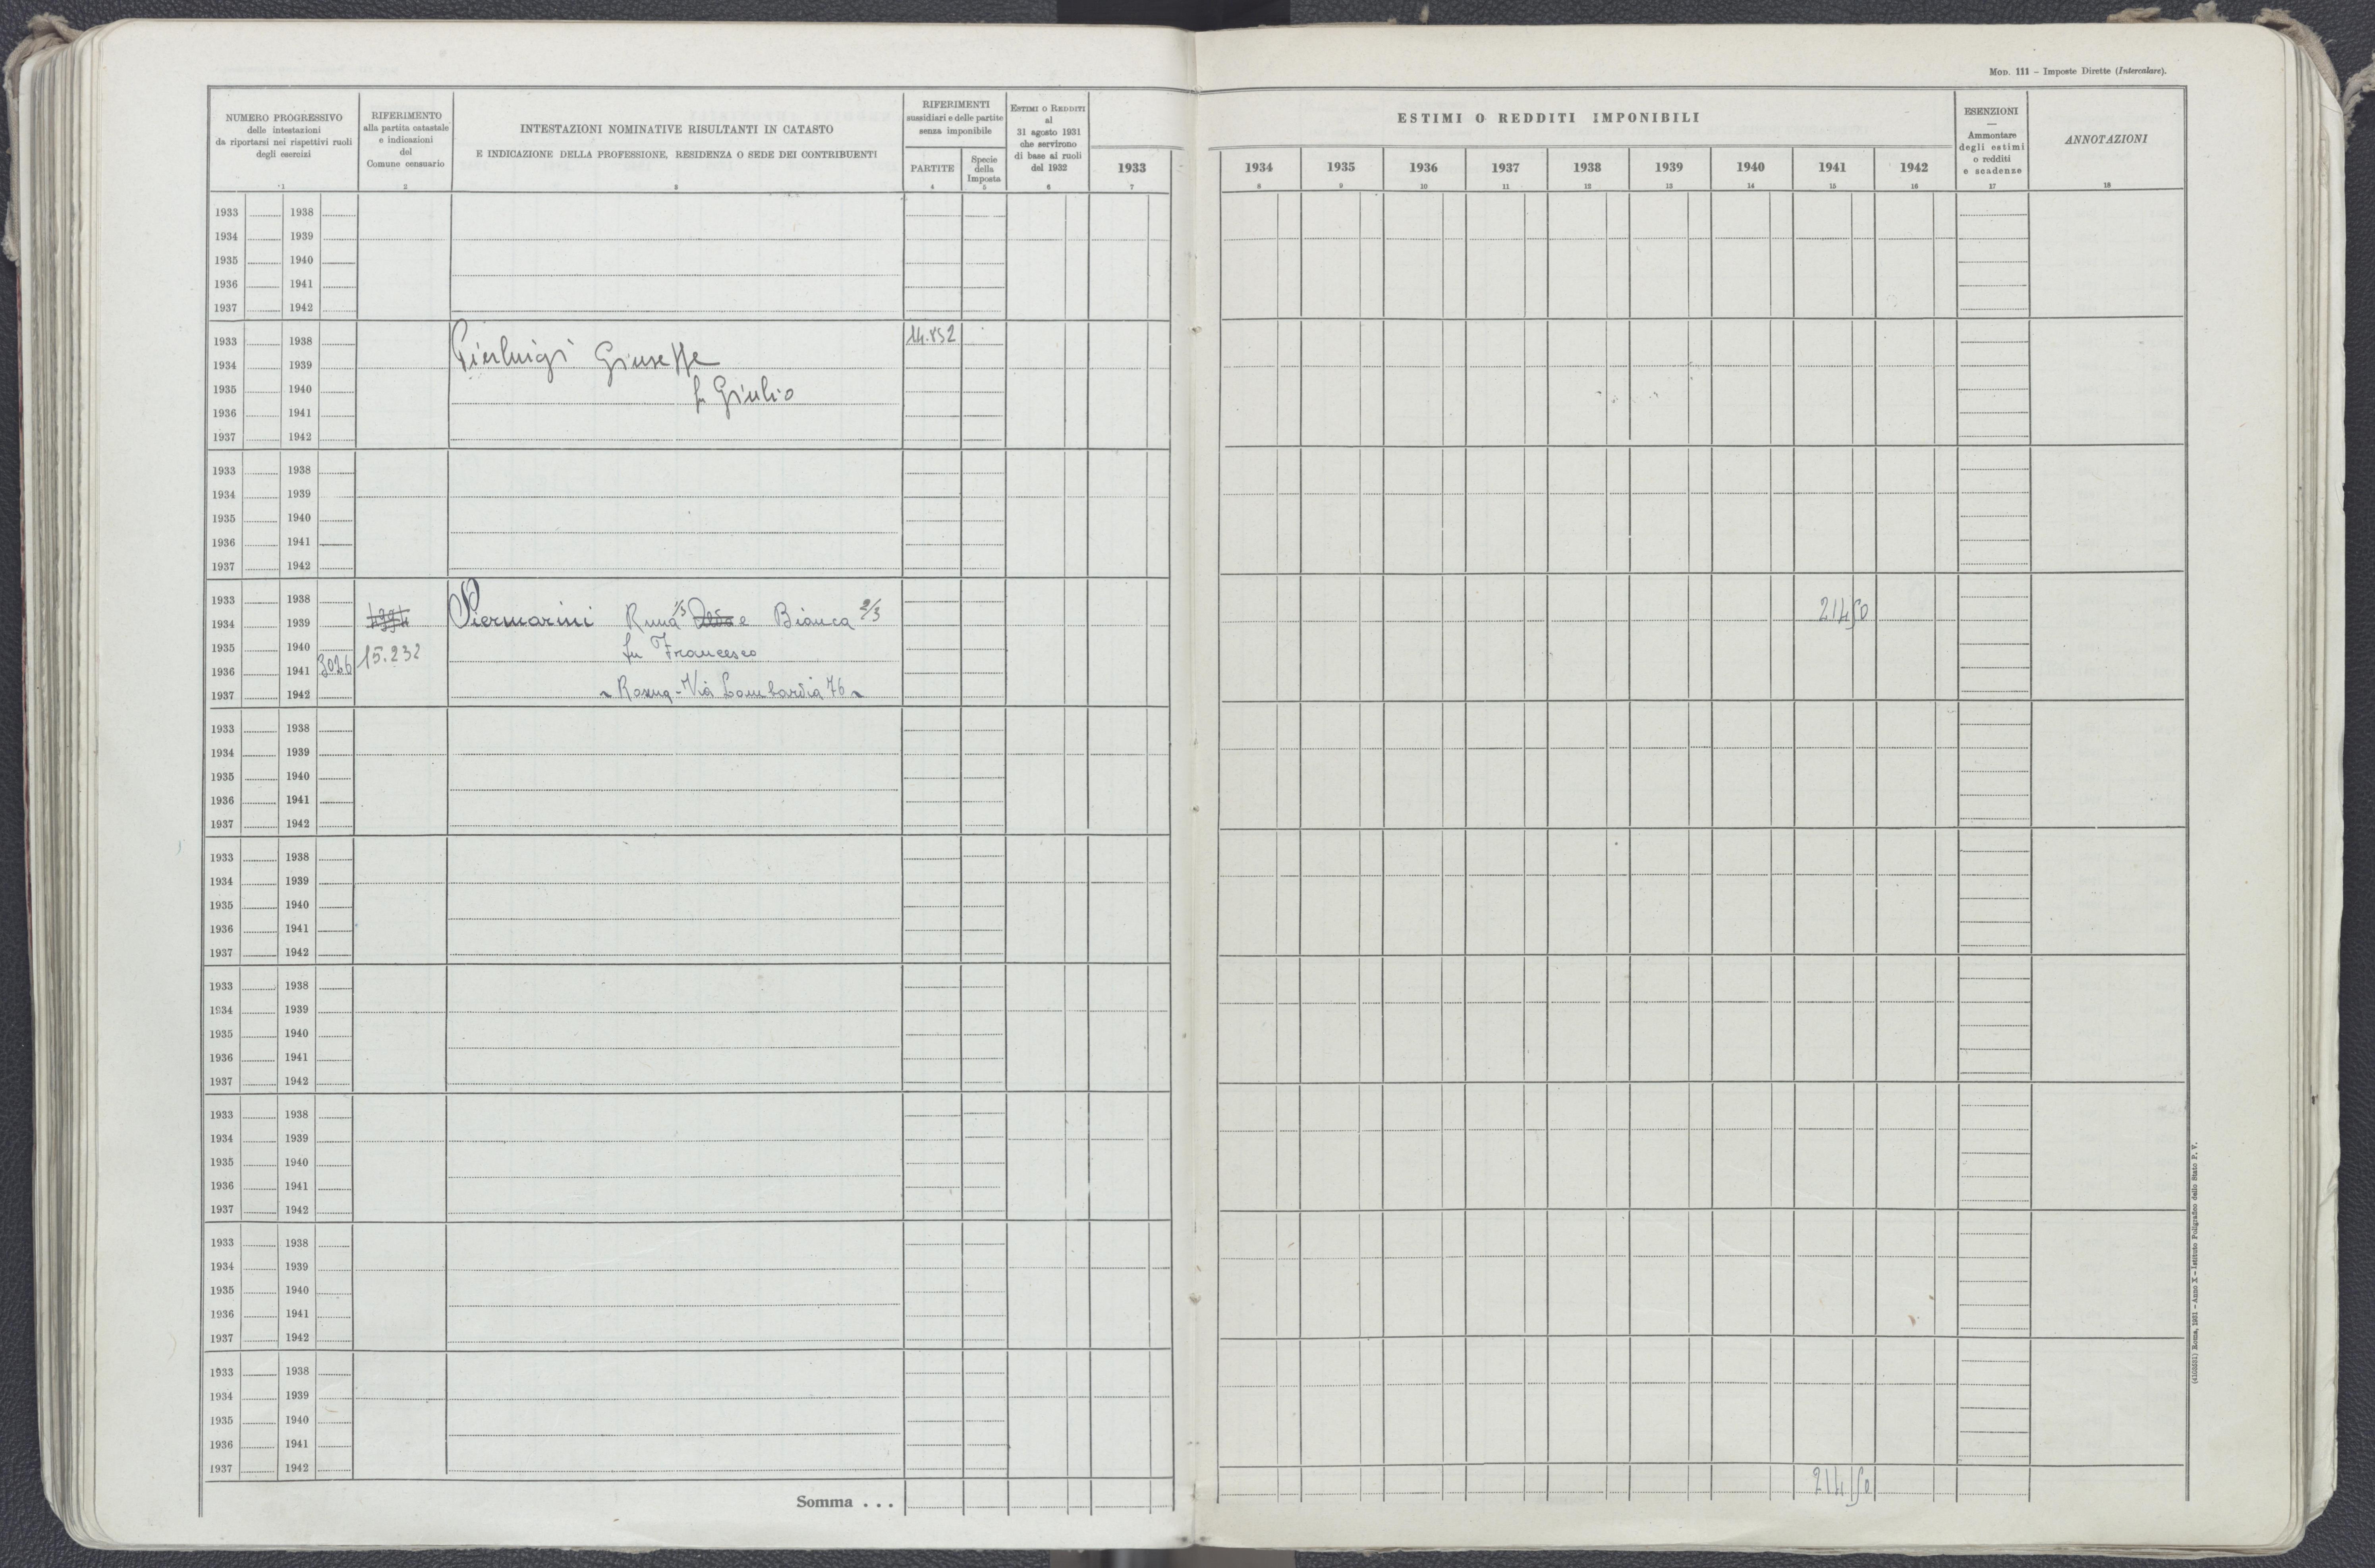 Mod. 111 - Imposte Dirette (Intercalare).
NUMERO PROGRESSIVO
delle intestazioni
da riportarsi nei rispettivi ruoli
degli esercizi
1
RIFERIMENTO
alla partita catastale
e indicazioni
del
Comune censuario
2
INTESTAZIONI NOMINATIVE RISULTANTI IN CATASTO
E INDICAZIONE DELLA PROFESSIONE, RESIDENZA O SEDE DEI CONTRIBUENTI
3
RIFERIMENTI
sussidiari e delle partite
senza imponibile
PARTITE
4
Specie
della
Imposta
5
Estimi o Redditi
al
31 agosto 1931
che servirono
di base ai ruoli
del 1932
6
1933
7
ESTIMI O REDDITI IMPONIBILI
1934 1935 1936 1937 1938 1939 1940 1941 1942
8 9 10 11 12 13 14 15 16
ESENZIONI
—
Ammontare
degli estimi
o redditi
e scadenze
17
ANNOTAZIONI
18
1933 1938
1934 1939
1935 1940
1936 1941
1937 1942
1933 1938 14.852
1934 1939 Pierluigi Giuseppe
1935 1940 fu Giulio
1936 1941
1937 1942
1933 1938
1934 1939
1935 1940
1936 1941
1937 1942
1933 1938
1934 1939 Piermarini 1/3 e Bianca 2/3 214 50
1935 1940 15.232 fu Francesco
1936 1941 3026
1937 1942 Roma - Via Lombardia 76
1933 1938
1934 1939
1935 1940
1936 1941
1937 1942
1933 1938
1934 1939
1935 1940
1936 1941
1937 1942
1933 1938
1934 1939
1935 1940
1936 1941
1937 1942
1933 1938
1934 1939
1935 1940
1936 1941
1937 1942
1933 1938
1934 1939
1935 1940
1936 1941
1937 1942
1933 1938
1934 1939
1935 1940
1936 1941
1937 1942
Somma . . . 214 50
Roma, 1931 - Anno X - Istituto Poligrafico dello Stato P. V.